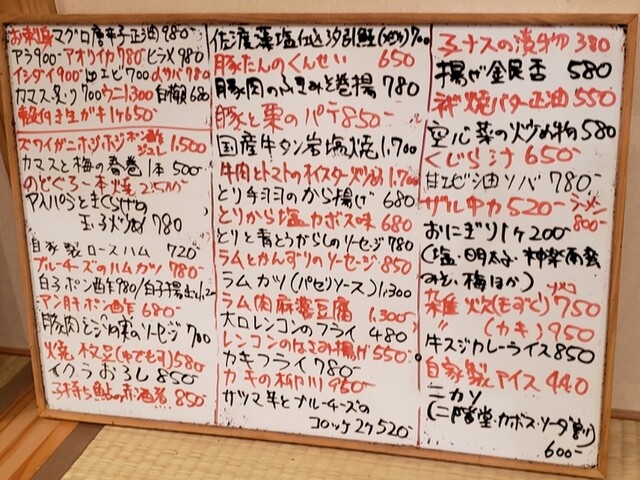 お刺身 マグロ唐辛子正油 980-
アラ900- アオリイカ 780- ヒラメ 980-
イシダイ900 甘エビ700 〆サバ780
カマス炙り700 ウニ1.300 白梅貝680
殻付き生ガキ1ヶ650
ズワイガニホジホジポン酢ジュレ 1.500
カマスと梅の春巻1本 500-
のどぐろ一本焼
アスパラときくらげの
玉子炒め 780
自家製ロースハム 720-
ブルーチーズのハムカツ 780-
白子ポン酢980/白子揚
アン肝ポン酢 680-
豚肉と のソーセージ 700
焼枝豆(ゆでもす)580
イクラおろし 850-
子持ち鮎の赤酒煮 850
佐渡藻塩仕込汐引鮭 700
豚たんのくんせい 650
豚肉の 巻揚 780
豚と栗のパテ 850-
国産牛タン岩塩焼 1.700
牛肉とトマトのオイスター炒め 1.700
とり手羽のから揚げ 680
とりから塩カボス味 680
とりと青とうがらしのソーセージ 780
ラムとかんずりのソーセージ 850
ラムカツ(パセリソース)1.300
ラム肉麻婆豆腐 1.300-
大口レンコンのフライ 480
レンコンのはさみ揚げ 550-
カキフライ 780-
カキの柳川 950-
サツマ芋とブルーチーズの
コロッケ2ケ520-
子ナスの漬物 380
揚げ銀杏 580
焼バター正油 550
空心菜の炒め物 580
くじら汁 650-
甘エビ油ソバ 780-
ザル中カ 520- ラーメン800-
おにぎり1ヶ200-
(塩・明太子・神楽南蛮
みそ・梅ほか)
雑炊(もずく) 750
〃 (カキ) 950
牛スジカレーライス850
自家製アイス 440
ニカソ
(二階堂・カボス・ソーダ割)
600-